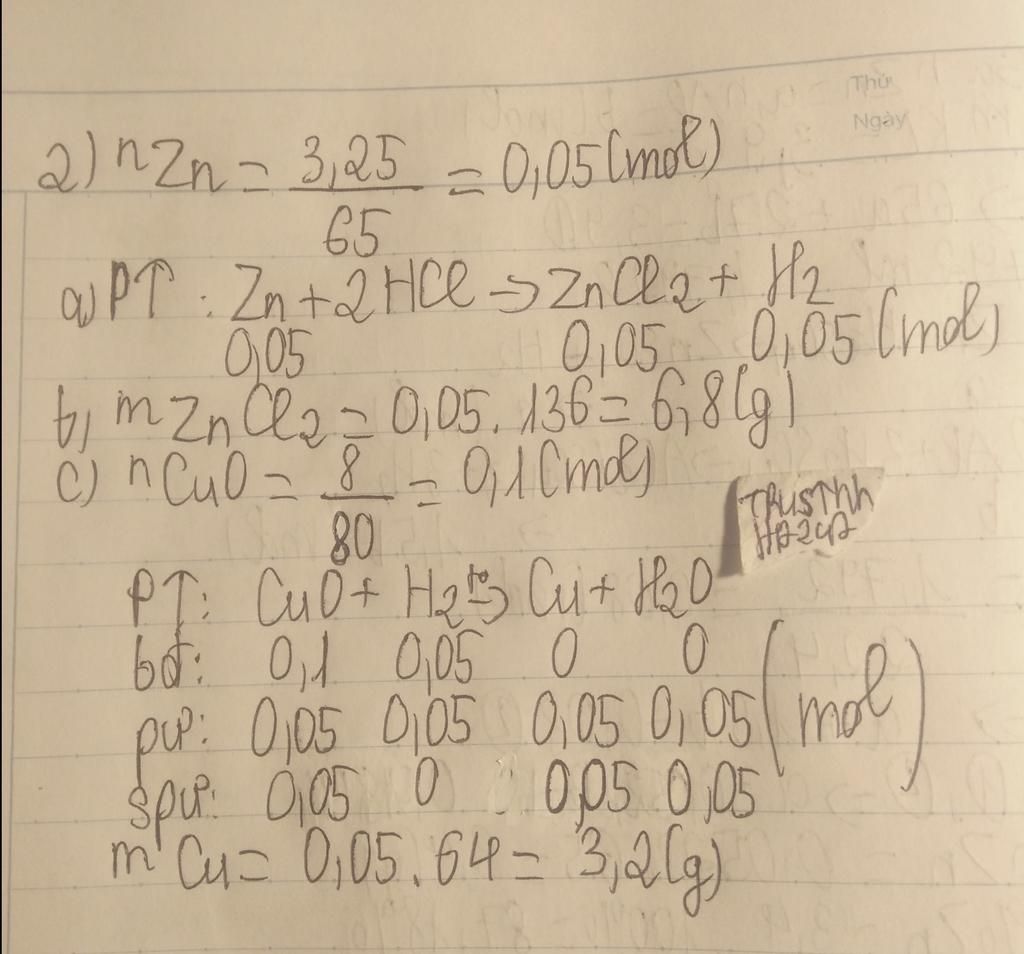 Thứ
Ngày
2) nZn = 3,25/65 = 0,05 (mol)
a) PT: Zn + 2HCl → ZnCl2 + H2
0,05 0,05 0,05 (mol)
b) mZnCl2 = 0,05 . 136 = 6,8 (g)
c) nCuO = 8/80 = 0,1 (mol)
PT: CuO + H2 t° → Cu + H2O
bđ: 0,1 0,05 0 0
pư: 0,05 0,05 0,05 0,05 (mol)
spư: 0,05 0 0,05 0,05
mCu = 0,05 . 64 = 3,2 (g)